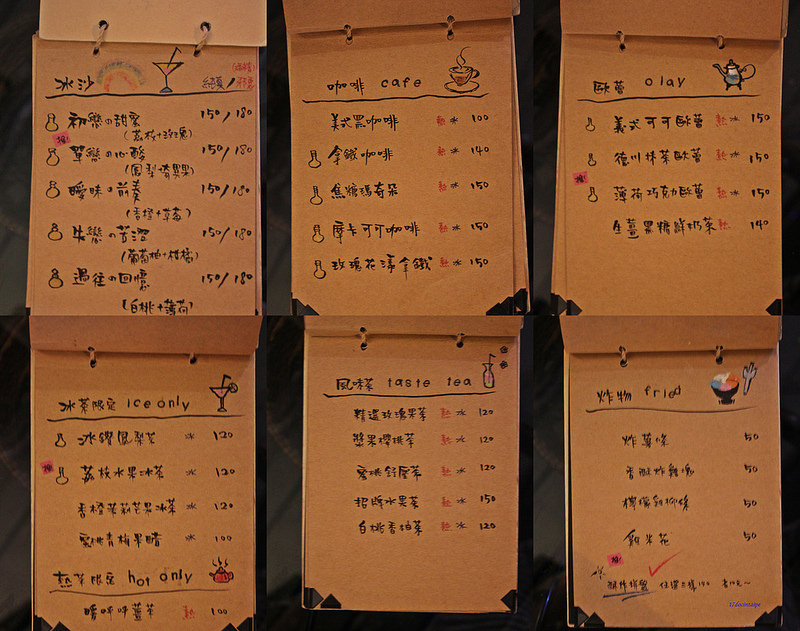 冰沙 純真/邪惡
(酒精)
初戀の甜蜜 150/180
(荔枝+玫瑰)
推!
單戀の心酸 150/180
(鳳梨+青蘋果)
曖昧の前奏 150/180
(香橙+草莓)
失戀の苦澀 150/180
(葡萄柚+柑橘)
過往の回憶 150/180
(白桃+薄荷)
咖啡 cafe
美式黑咖啡 熱 冰 100
拿鐵咖啡 熱 冰 140
焦糖瑪奇朵 熱 冰 150
摩卡可可咖啡 熱 冰 150
玫瑰花漾拿鐵 熱 冰 150
歐蕾 olay
義式可可歐蕾 熱 冰 150
德川抹茶歐蕾 熱 冰 150
推!
薄荷巧克力歐蕾 熱 冰 150
生薑黑糖鮮奶茶 熱 140
冰茶限定 ice only
冰鑽鳳梨茶 冰 120
推!
荔枝水果冰茶 冰 120
香橙茉莉芒果冰茶 冰 120
蜜桃青梅果醋 冰 100
熱茶限定 hot only
暖呼呼薑茶 熱 100
風味茶 taste tea
精選玫瑰果茶 熱 冰 120
漿果櫻桃茶 熱 冰 120
蜜桃舒屋茶 熱 冰 120
招牌水果茶 熱 冰 150
白桃香柏茶 熱 冰 120
炸物 fried
炸薯條 50
香酥炸雞塊 50
檸檬雞柳條 50
雞米花 50
推!
任選三樣120